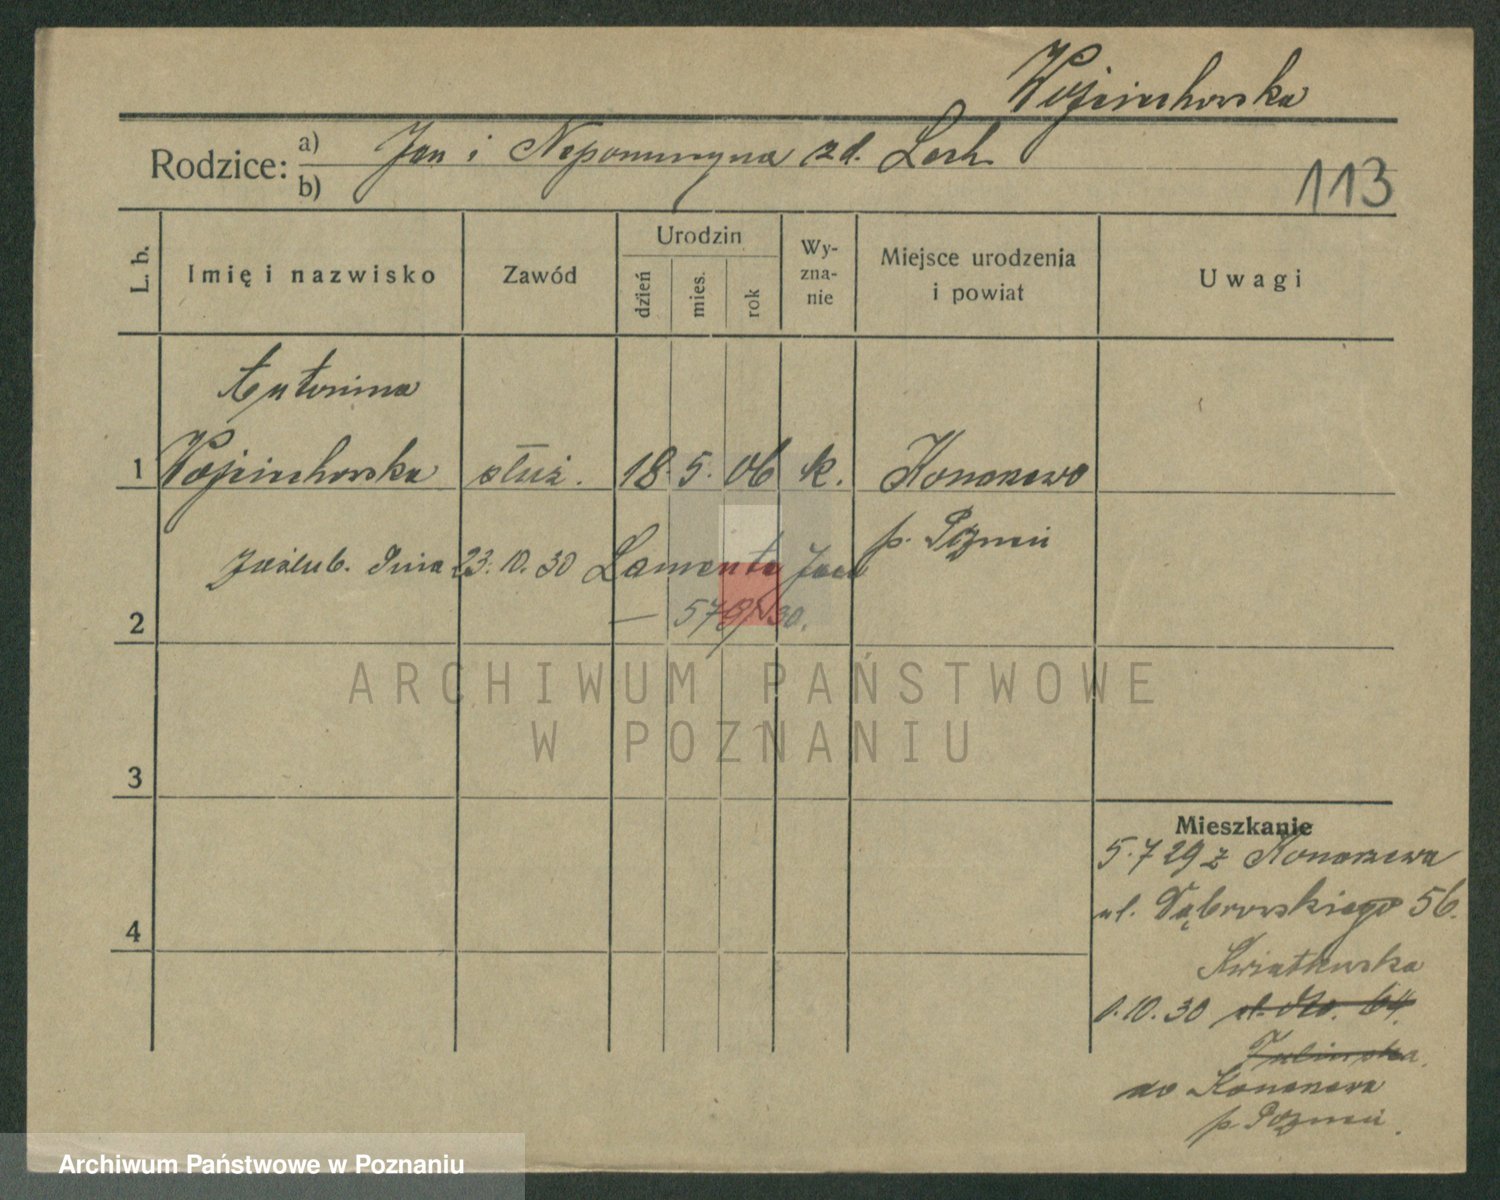 Wojciechowska
Rodzice: a) Jan i Nepomucyna zd. Lech
b)
113
L. b. Imię i nazwisko Zawód Urodzin dzień mies. rok Wy-zna-nie Miejsce urodzenia i powiat Uwagi
Antonina
1 Wojciechowska służ. 18. 5. 06 k. Konarzewo
p. Poznań
zaślub. dnia 23. 10. 30 Lamenta Jan
2 — 578/30.
ARCHIWUM PAŃSTWOWE
W POZNANIU
3
Mieszkanie
5.7 29 z Konarzewa
ul. Dąbrowskiego 56.
4
Kwiatkowska
1.10.30 ul. 64.
do Konarzewa
p. Poznań.
Archiwum Państwowe w Poznaniu